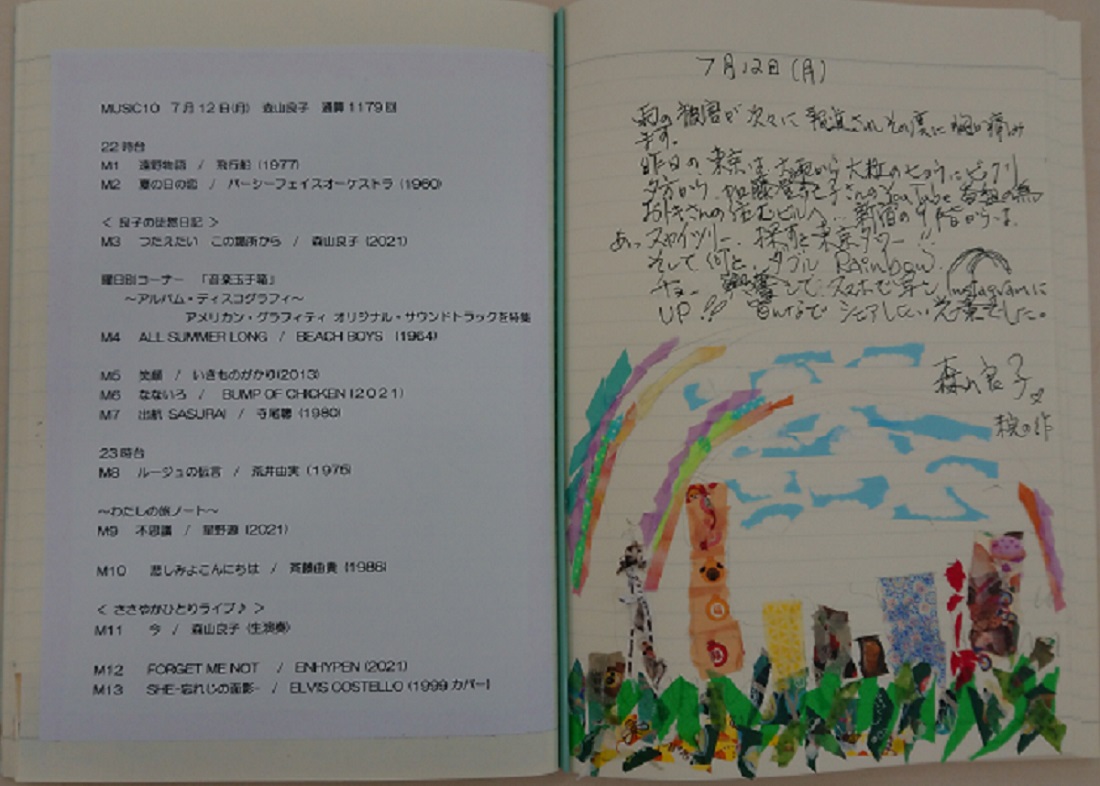 MUSIC10 7月12日(月) 森山良子 通算1179回
22時台
M1 遠野物語 / 飛行船 (1977)
M2 夏の日の恋 / パーシーフェイスオーケストラ (1960)
< 良子の徒然日記 >
M3 つたえたい この場所から / 森山良子 (2021)
曜日別コーナー 「音楽玉手箱」
~アルバム・ディスコグラフィ~
アメリカン・グラフィティ オリジナル・サウンドトラックを特集
M4 ALL SUMMER LONG / BEACH BOYS (1964)
M5 笑顔 / いきものがかり(2013)
M6 なないろ / BUMP OF CHICKEN (2021)
M7 出航 SASURAI / 寺尾聰 (1980)
23時台
M8 ルージュの伝言 / 荒井由実 (1975)
~わたしの旅ノート~
M9 不思議 / 星野源 (2021)
M10 悲しみよこんにちは / 斉藤由貴 (1986)
< ささやかひとりライブ♪ >
M11 今 / 森山良子 (生演奏)
M12 FORGET ME NOT / ENHYPEN (2021)
M13 SHE-忘れじの面影- / ELVIS COSTELLO (1999 カバー)
7月12日(月)
雨の被害が次々に報道されその度に胸が痛み
ます。
昨日の東京は大雨から大粒のヒョウにビックリ
夕方から加藤登紀子さんのYouTube番組の為
おトキさんの住むビルへ... 新宿の9階からは、
あっスカイツリー、探すと東京タワー!!
そして何と、ダブル Rainbow
興奮してスマホで Instagramに
UP!! 皆んなでシェアしたい光景でした。
森山良子